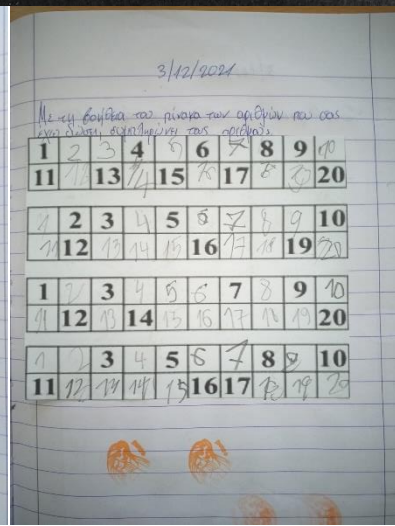 3/12/2021
Με τη βοήθεια του πίνακα των αριθμών που σας
έχω δώσει, συμπληρώνω τους αριθμούς.
1 2 3 4 5 6 7 8 9 10
11 12 13 14 15 16 17 8 20
1 2 3 4 5 6 7 8 9 10
11 12 13 14 15 16 17 18 19 20
1 2 3 4 5 6 7 8 9 10
11 12 13 14 15 16 17 18 19 20
1 2 3 4 5 6 7 8 9 10
11 12 13 14 15 16 17 18 19 20